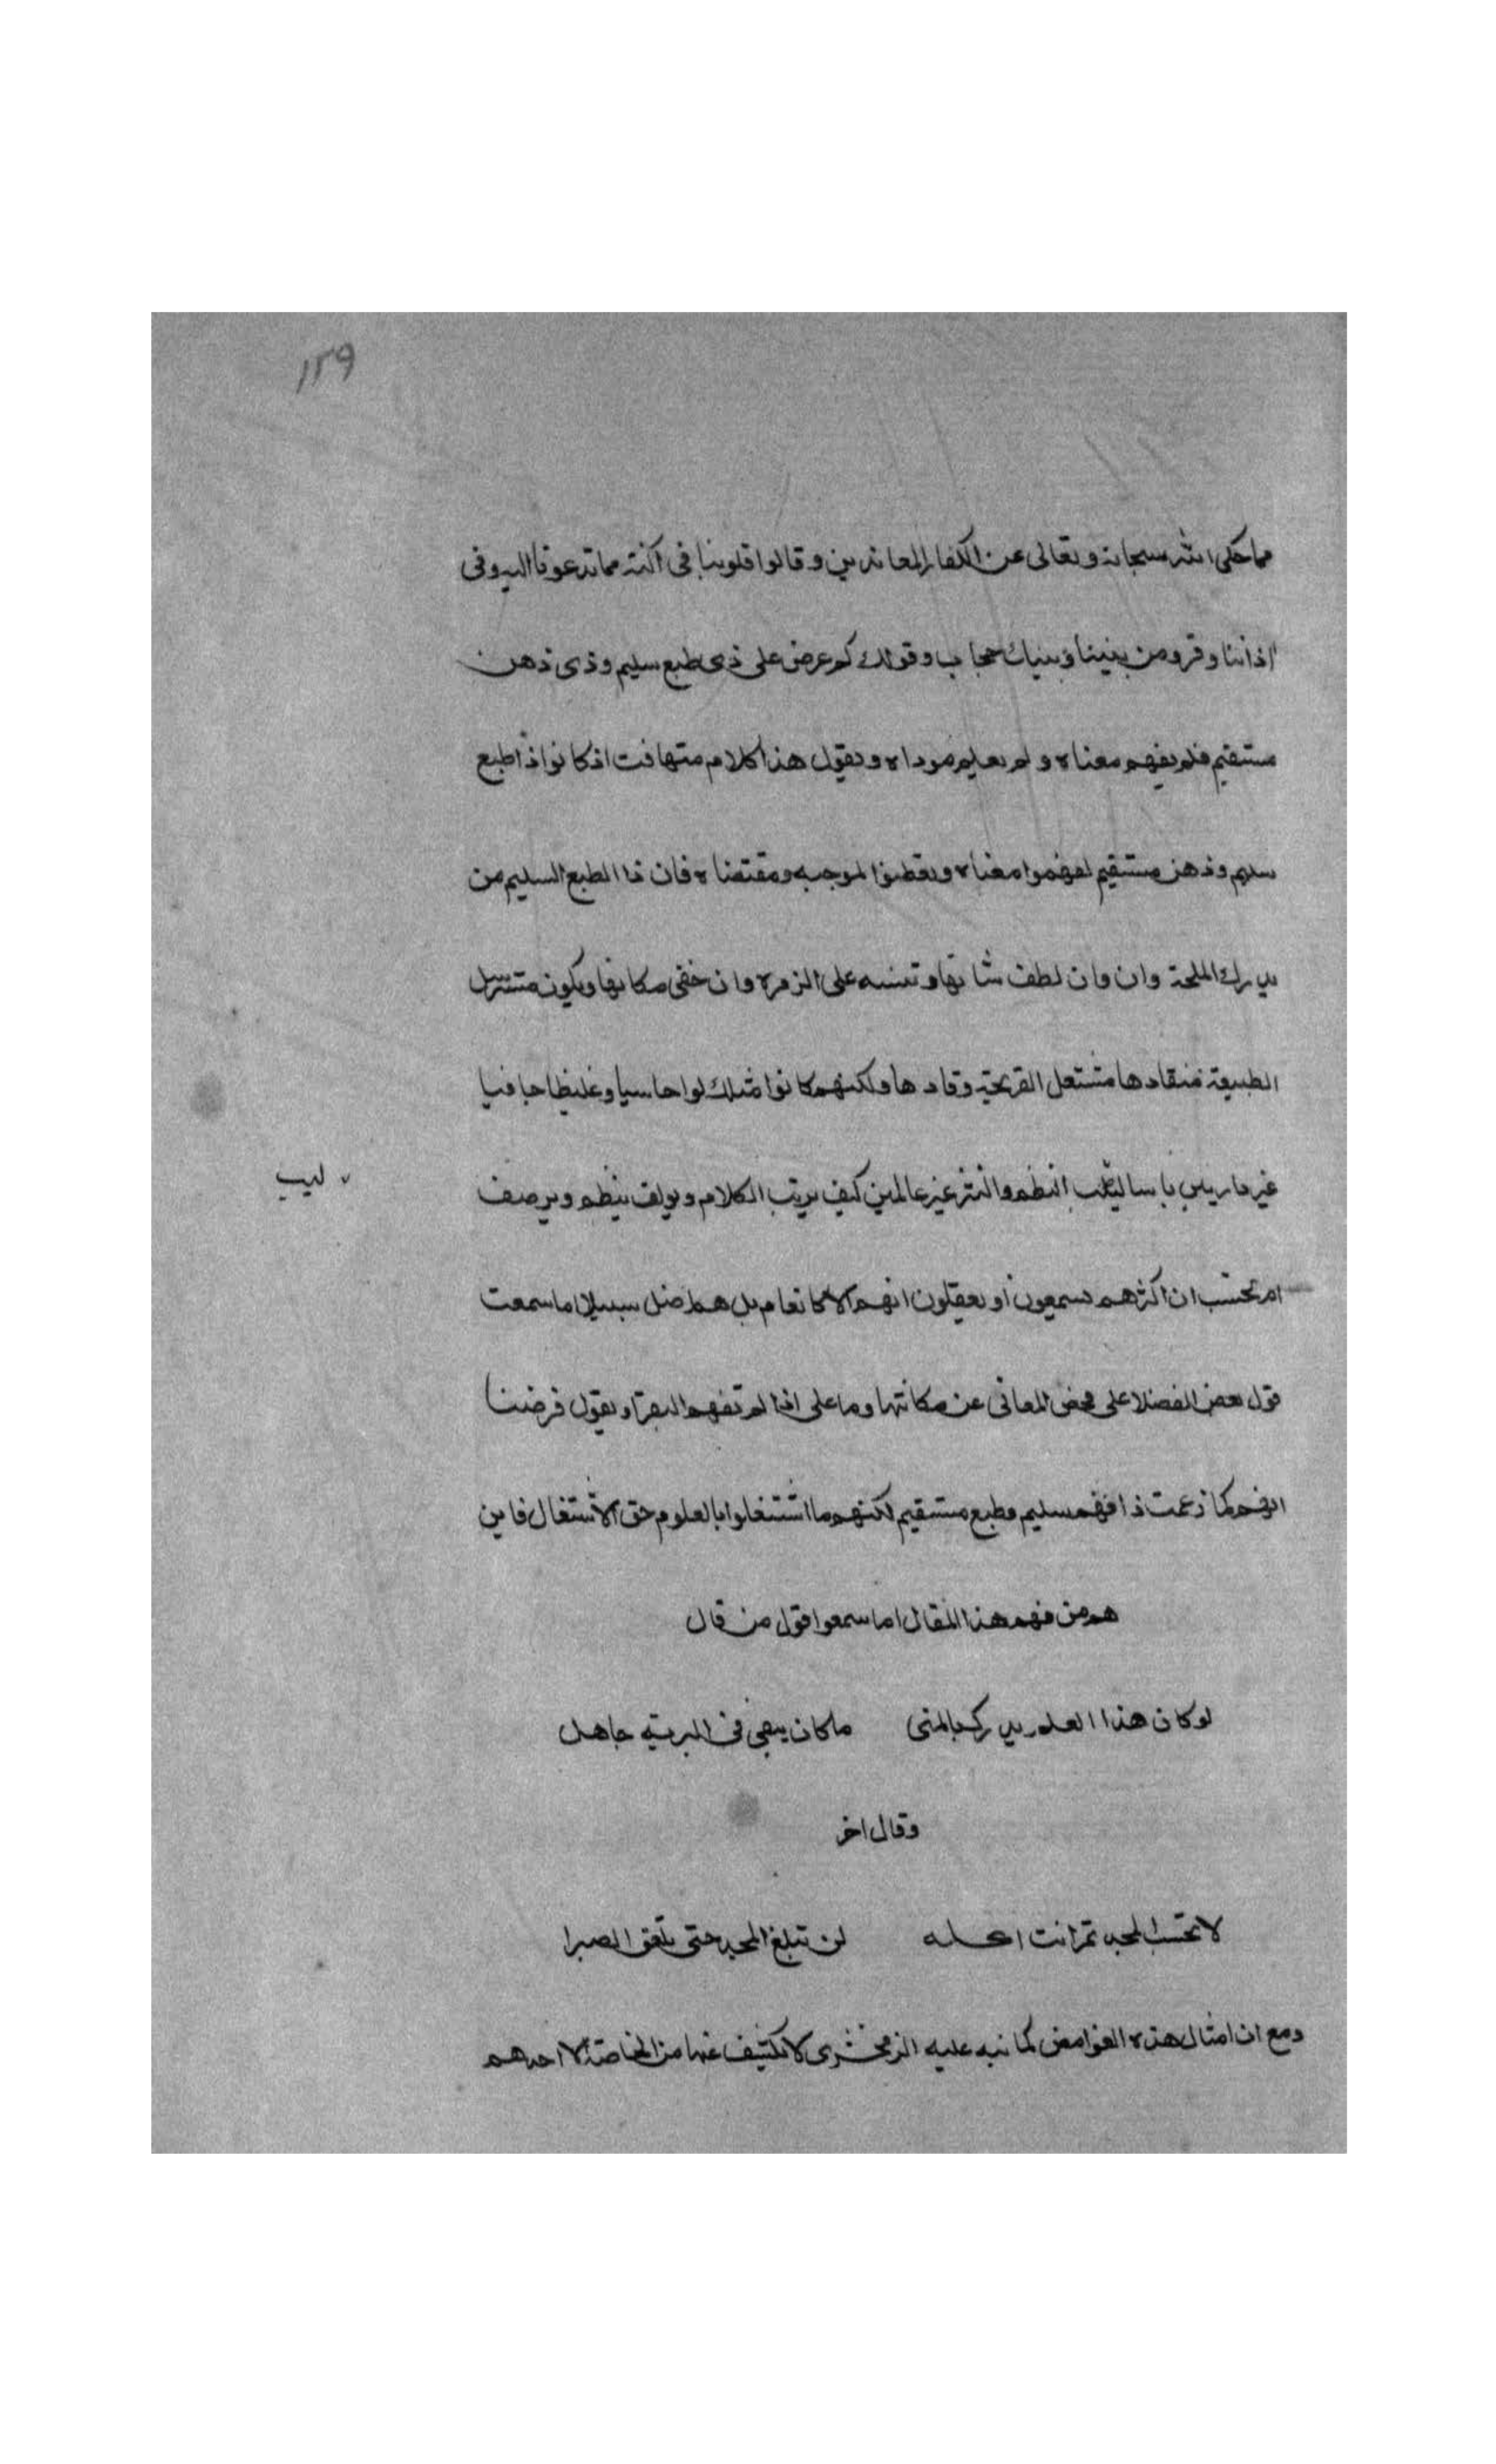 ١٢٩
مما حكى الله سبحانه وتعالى عن الكفار المعاندين وقالوا قلوبنا فى اكنة مما تدعونا اليه وفى
اذاننا وقر ومن بيننا وبينك حجاب وقولك كم عرض على ذى طبع سليم وذى ذهن
مستقيم فلم يفهم معناه ولم يعلم موداه ونقول هذا كلام متهافت اذ كانوا ذا طبع
سليم وذهن مستقيم لفهموا معناه وتفطنوا لموجبه ومقتضاه فان ذا الطبع السليم من
يدرك اللمحة وان وان لطف شانها وتنبه على الرمزه وان خفى مكانها ويكون مسترسل
الطبيعة منقادها مشتعل القريحة وقادها ولكنهم كانوا مثلك لواحاسيا وغليظا جافيا
غير داريين باساليب النظم والنثر غير عالمين كيف يرتب الكلام ويولف ينظم ويرصف
ليب
ام تحسب ان اكثرهم يسمعون او يعقلون انهم الا كانعام بل هم اضل سبيلا اما سمعت
قول بعض الفضلا على محض المعانى عن مكانتها وما على اذا لم تفهم البقر او نقول فرضنا
انهم كما زعمت ذا فهم سليم وطبع مستقيم لكنهم ما اشتغلوا بالعلوم حق الاشتغال فاين
هم من فهم هذا المقال اما سمعوا قول من قال
لو كان هذا العلم يدرك بالمنى ما كان يبقى فى البرية جاهل
وقال اخر
لا تحسب المجد تمرا انت اكله لن تبلغ المجد حتى تلعق الصبرا
ومع ان امثال هذه الغوامض كما نبه عليه الزمخشرى لا تكشف عنها من الخاصة الا احدهم